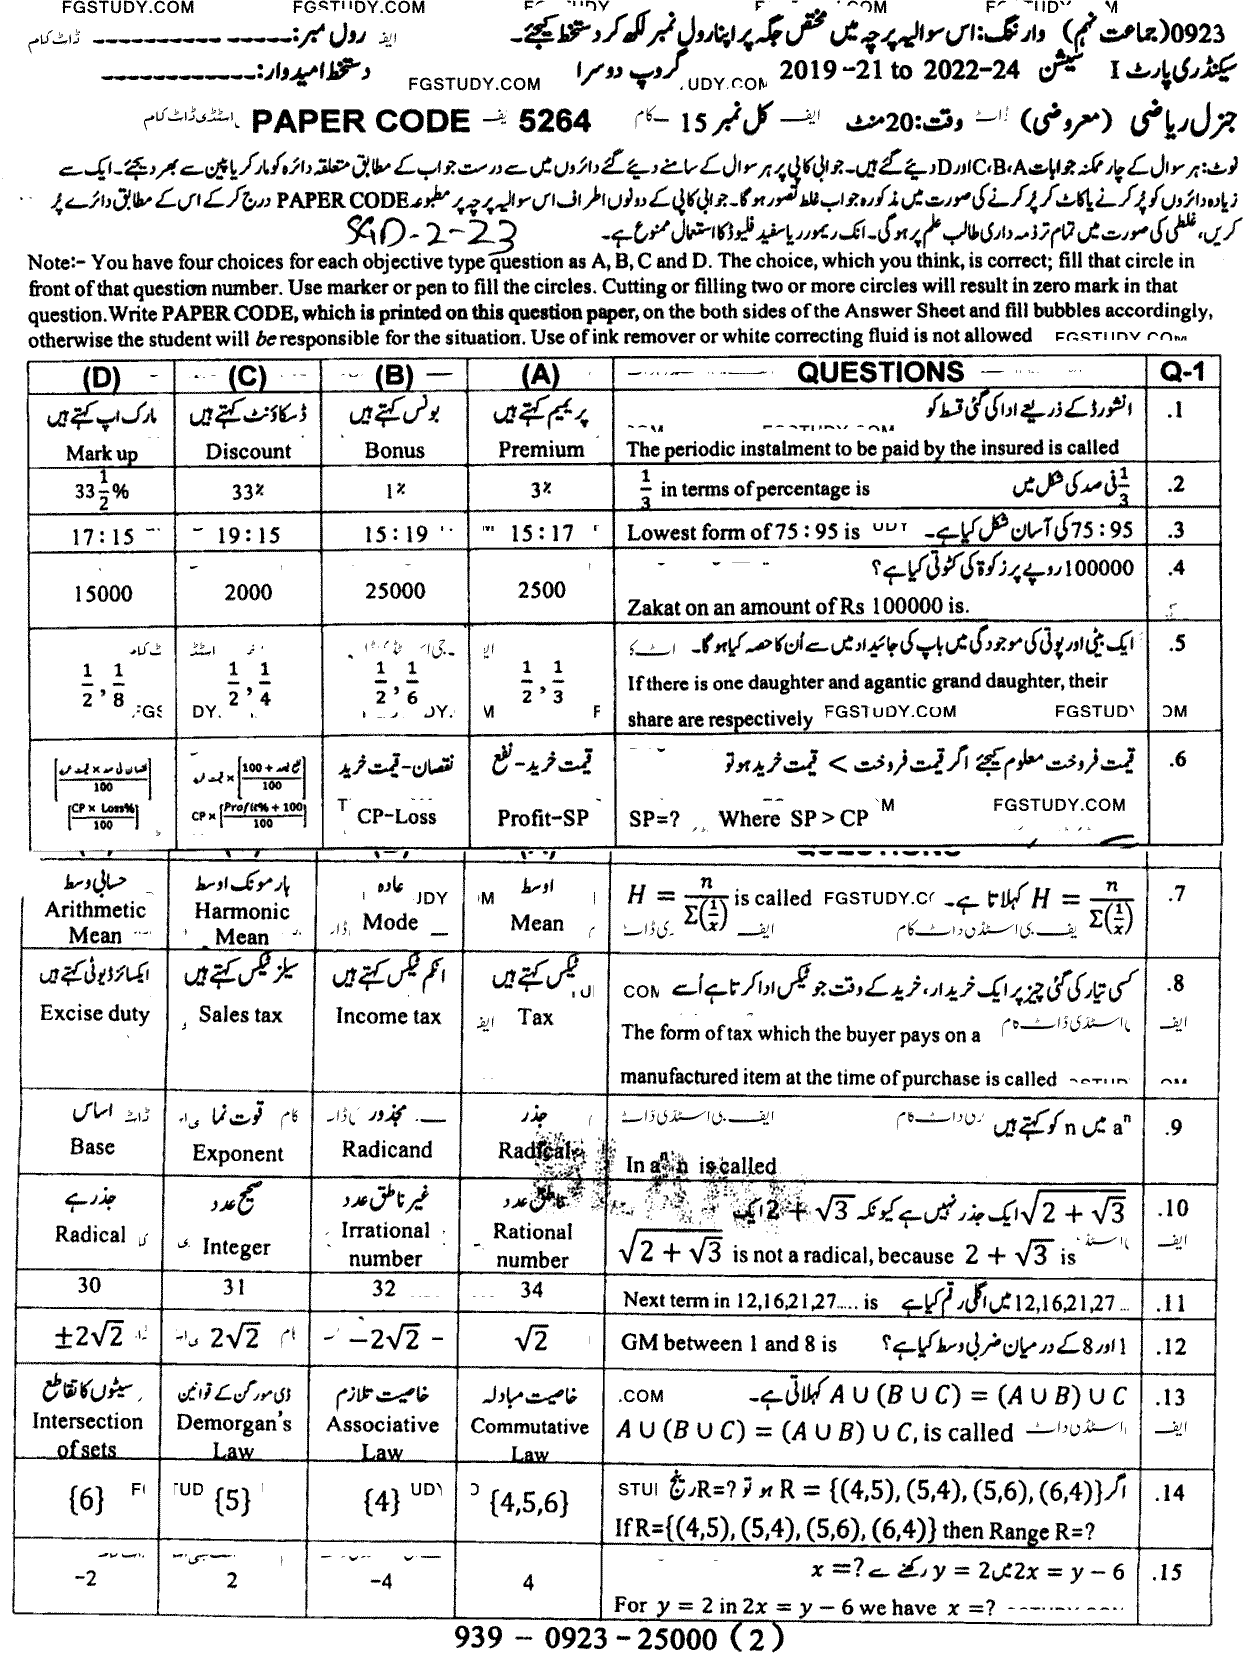 FGSTUDY.COM FGSTUDY.COM
0923 (جماعت نہم) وارننگ: اس سوالیہ پرچہ میں مختص جگہ پر اپنا رول نمبر لکھ کر دستخط کیجئے۔ رول نمبر: ---------------
سیکنڈری پارٹ I سیشن 2019-21 to 2022-24 گروپ دوسرا FGSTUDY.COM دستخط امیدوار: ---------------
جنرل ریاضی (معروضی) وقت: 20 منٹ کل نمبر 15 PAPER CODE 5264
نوٹ: ہر سوال کے چار ممکنہ جوابات C، B، A اور D دیئے گئے ہیں۔ جوابی کاپی پر ہر سوال کے سامنے دیئے گئے دائروں میں سے درست جواب کے مطابق متعلقہ دائرہ کو مارکر یا پین سے بھر دیجئے۔ ایک سے
زیادہ دائروں کو پُر کرنے یا کاٹ کر پُر کرنے کی صورت میں مذکورہ جواب غلط تصور ہوگا۔ جوابی کاپی کے دونوں اطراف اس سوالیہ پرچہ پر مطبوعہ PAPER CODE درج کر کے اس کے مطابق دائرے پُر
کریں، غلطی کی صورت میں تمام تر ذمہ داری طالب علم پر ہوگی۔ انک ریمور یا سفید فلیوڈ کا استعمال ممنوع ہے۔ SGD-2-23
Note:- You have four choices for each objective type question as A, B, C and D. The choice, which you think, is correct; fill that circle in
front of that question number. Use marker or pen to fill the circles. Cutting or filling two or more circles will result in zero mark in that
question. Write PAPER CODE, which is printed on this question paper, on the both sides of the Answer Sheet and fill bubbles accordingly,
otherwise the student will be responsible for the situation. Use of ink remover or white correcting fluid is not allowed
(D) (C) (B) (A) QUESTIONS Q-1
مارک اپ کہتے ہیں ڈسکاؤنٹ کہتے ہیں بونس کہتے ہیں پریمیم کہتے ہیں انشورڈ کے ذریعے ادا کی گئی قسط کو .1
Mark up Discount Bonus Premium The periodic instalment to be paid by the insured is called
33 1/2 % 33% 1% 3% 1/3 in terms of percentage is 1/3 فی صد کی شکل میں .2
17:15 19:15 15:19 15:17 Lowest form of 75:95 is 75:95 کی آسان شکل کیا ہے۔ .3
100000 روپے پر زکوٰۃ کی کٹوتی کیا ہے؟ .4
15000 2000 25000 2500 Zakat on an amount of Rs 100000 is.
ایک بیٹی اور پوتی کی موجودگی میں باپ کی جائیداد میں سے اُن کا حصہ کیا ہوگا۔ .5
1/2, 1/8 1/2, 1/4 1/2, 1/6 1/2, 1/3 If there is one daughter and agantic grand daughter, their
share are respectively FGSTUDY.COM
نقصان - قیمت خرید قیمت خرید - نفع قیمت فروخت معلوم کیجئے اگر قیمت فروخت > قیمت خرید ہو تو .6
[CP × Loss% / 100] CP × [Profit% + 100 / 100] CP-Loss Profit-SP SP=? Where SP > CP FGSTUDY.COM
حسابی وسط ہارمونک اوسط عادہ اوسط H = n/Σ(1/x) کہلاتا ہے۔ .7
Arithmetic Mean Harmonic Mean Mode Mean H = n/Σ(1/x) is called
ایکسائز ڈیوٹی کہتے ہیں سیلز ٹیکس کہتے ہیں انکم ٹیکس کہتے ہیں ٹیکس کہتے ہیں کسی تیار کی گئی چیز پر ایک خریدار، خرید کے وقت جو ٹیکس ادا کرتا ہے اُسے .8
Excise duty Sales tax Income tax Tax The form of tax which the buyer pays on a
manufactured item at the time of purchase is called
اساس قوت نما مجذور جذر aⁿ میں n کو کہتے ہیں .9
Base Exponent Radicand Radical In aⁿ n is called
جذر ہے صحیح عدد غیر ناطق عدد ناطق عدد √(2 + √3) ایک جذر نہیں ہے کیونکہ 2 + √3 ایک .10
Radical Integer Irrational number Rational number √(2 + √3) is not a radical, because 2 + √3 is
30 31 32 34 Next term in 12,16,21,27..... is 12,16,21,27... میں اگلی رقم کیا ہے .11
±2√2 2√2 -2√2 √2 GM between 1 and 8 is 1 اور 8 کے درمیان ضربی وسط کیا ہے؟ .12
سیٹوں کا تقاطع ڈی مورگن کے قوانین خاصیت تلازم خاصیت مبادلہ A ∪ (B ∪ C) = (A ∪ B) ∪ C کہلاتی ہے۔ .13
Intersection of sets Demorgan's Law Associative Law Commutative Law A ∪ (B ∪ C) = (A ∪ B) ∪ C, is called
اگر R = {(4,5), (5,4), (5,6), (6,4)} ہو تو رینج R=? .14
{6} {5} {4} {4,5,6} If R={(4,5), (5,4), (5,6), (6,4)} then Range R=?
2x = y - 6 میں y = 2 رکھنے سے x =? .15
-2 2 -4 4 For y = 2 in 2x = y - 6 we have x =?
939 - 0923 - 25000 (2)